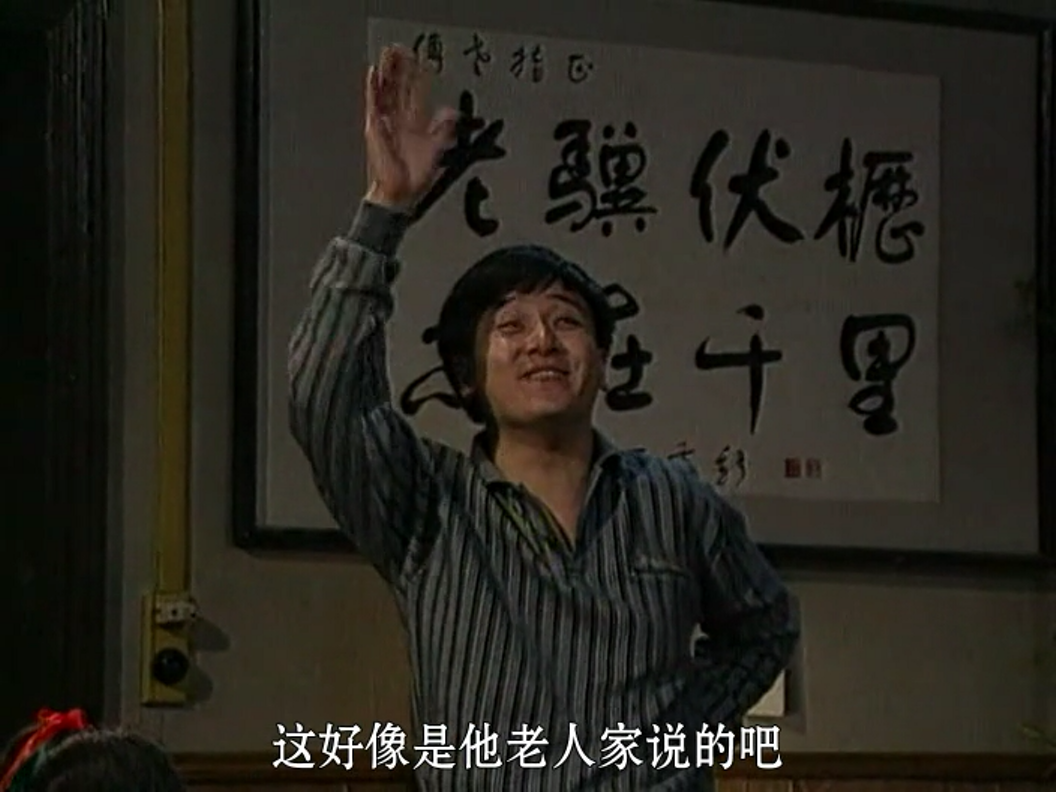 傅老指正
老驥伏櫪
志在千里
这好像是他老人家说的吧